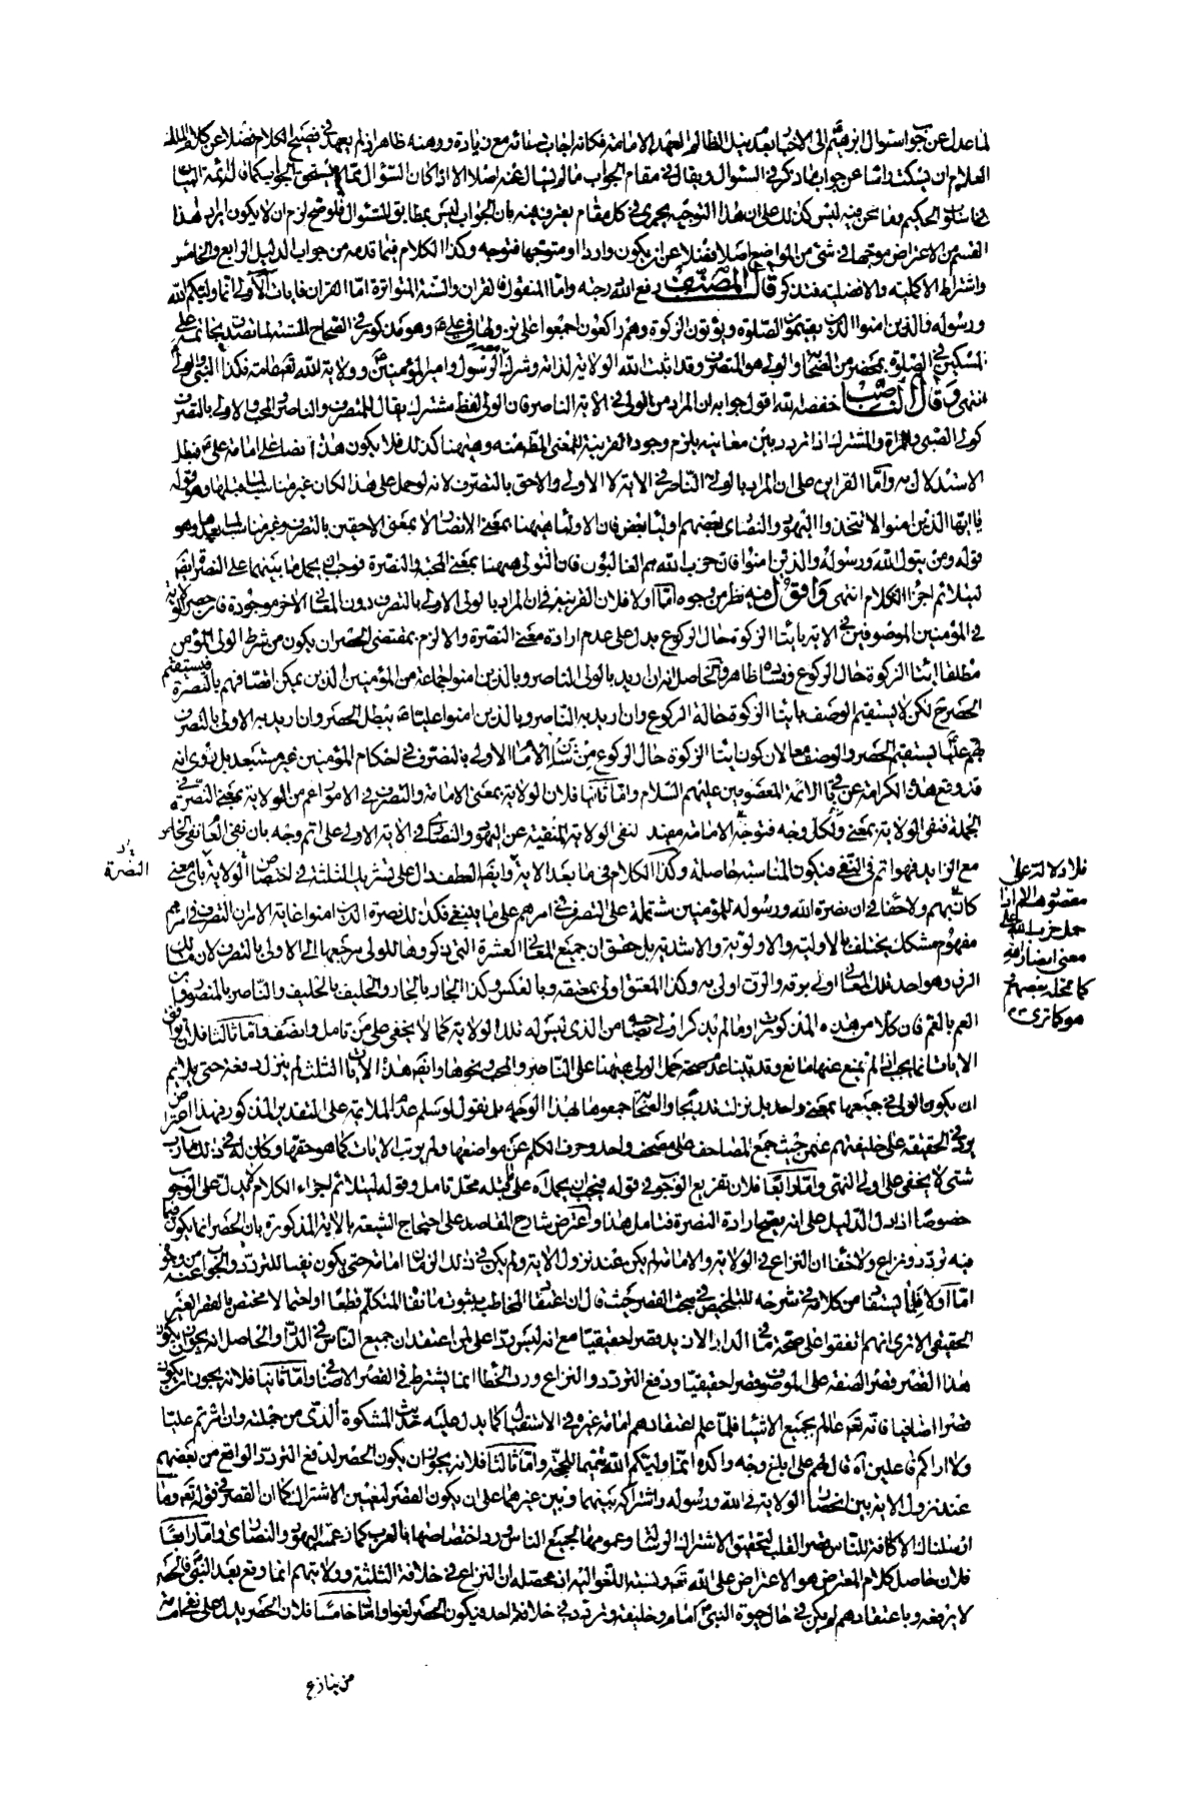 لما عدل عن جواب سؤال ابرهيم الى الاخبار بعدم نيل الظالم لعهد الامامة فكانه اجاب سائله مع زيادة ووهنه ظاهر اذ لم يعهد في فصيح الكلام فضلا عن كلام الملك
العلام ان يسكت راسا عن جواب ما ذكر في السؤال ويقال في مقام الجواب ما لم يسال عنه اصلا الا اذا كان السؤال مما لا يستحق الجواب كما قال ائمة البيان
في اسلوب الحكيم وما نحن فيه ليس كذلك على ان هذا التوجيه يجري في كل مقام يعترض فيه بان الجواب ليس بمطابق للسؤال فلو صح لزم ان لا يكون ايراد هذا
القسم من الاعتراض موجها في شئ من المواضع اصلا فضلا عن ان يكون واردا او متوجها فتوجه وكذا الكلام فيما قدمه من جواب الدليل الرابع والخامس
واشتراط الاكملية والافضلية فتذكر قال المصنف رفع الله درجته واما المنقول فالقران والسنة المتواترة اما القران فايات الاولى انما وليكم الله
ورسوله والذين امنوا الذين يقيمون الصلوة ويؤتون الزكوة وهم راكعون اجمعوا على نزولها في علي ع وهو مذكور في الصحاح الستة لما تصدق بخاتمه على
المسكين في الصلوة بمحضر من الصحابة والولي هو المتصرف وقد اثبت الله الولاية لذاته وشرك معه الرسول وامير المؤمنين وولاية الله تعالى عامة فكذا النبي والولي
انتهى وقال الناصب خفضه الله اقول جوابه ان المراد من الولي في الاية الناصر فان الولي لفظ مشترك يقال للمتصرف والناصر والمحب والاولى بالتصرف
كولي الصبي والمراة والمشترك اذا تردد بين معانيه يلزم وجود القرينة للمعنى المطلوب منه وههنا كذلك فلا يكون هذا نصا على امامة علي ع فبطل
الاستدلال به واما القراين على ان المراد بالولي الناصر في الاية لا الاولى والاحق بالتصرف لانه لو حمل على هذا لكان غير مناسب لما قبلها وهو قوله
يا ايها الذين امنوا لا تتخذوا اليهود والنصارى بعضهم اولياء بعض فان الاولياء ههنا بمعنى الانصار لا بمعنى الاحقين بالتصرف وغير مناسب لما بعدها وهو
قوله ومن يتول الله ورسوله والذين امنوا فان حزب الله هم الغالبون فان التولي ههنا بمعنى المحبة والنصرة فوجب ان يحمل ما بينهما على النصرة ايضا
ليتلائم اجزاء الكلام انتهى واقول فيه نظر من وجوه اما اولا فلان القرينة في ان المراد بالولي الاولى بالتصرف دون المعاني الاخر موجودة فان حصر الولاية
في المؤمنين الموصوفين في الاية بايتاء الزكوة حال الركوع يدل على عدم ارادة معنى النصرة والا لزم بمقتضى الحصر ان يكون من شرط الولي المؤمن
مطلقا ايتاء الزكوة حال الركوع وفساده ظاهر والحاصل انه ان اريد بالولي الناصر وبالذين امنوا جماعة من المؤمنين الذين يمكن اتصافهم بالنصرة فيستقيم
الحصر ح لكن لا يستقيم الوصف بايتاء الزكوة حالة الركوع وان اريد به الناصر وبالذين امنوا عليا ع يبطل الحصر وان اريد به الاولى بالتصرف
بهم عليا يستقيم الحصر والوصف معا لان كون ايتاء الزكوة حال الركوع من شان الامام الاولى بالتصرف في احكام المؤمنين غير مستبعد بل روي انه
قد وقع هذه الكرامة عن باقي الائمة المعصومين عليهم السلام واما ثانيا فلان الولاية بمعنى الامامة والتصرف في الامور اعم من الولاية بمعنى النصرة في
الجملة فنفي الولاية بمعنى ولكل وجه فتوجه الامامة مفيد لنفي الولاية المنفية عن اليهود والنصارى في الاية الاولى على اتم وجه بان نفي العام نفي الخاص
مع الزايد فهو اتم في النفي فيكون المناسبة حاصلة وكذا الكلام في ما بعد الاية وايضا العطف دال على تشريك الثلثة في اختصاص الولاية باي معنى
كان بهم ولا خفاء في ان نصرة الله ورسوله للمؤمنين مشتملة على التصرف في امرهم على ما ينبغي فكذلك نصرة الذين امنوا غاية الامر ان التصرف في امرهم
مفهوم مشكك يختلف بالاولية والاولوية والاشدية بل حقق ان جميع المعاني العشرة التي ذكروها للولي مرجعها الى الاولى بالتصرف لان مالك
الرق وهو احد تلك المعاني اولى برقه والرق اولى به وكذا المعتق اولى بمعتقه وبالعكس وكذا الجار بالجار والحليف بالحليف والناصر بالمنصور وابن
العم بالعم فان كلا من هذه المذكورات وما لم يذكر اولى بصاحبه من الذي ليس له تلك الولاية كما لا يخفى على من تامل وانصف واما ثالثا فلان توافق
الايات انما يجب اذا لم يمنع عنها مانع وقد بينا عدم صحة حمل الولي ههنا على الناصر والمحب ونحوها وايضا هذه الايات الثلث لم ينزل دفعة حتى يلايم
ان يكون الولي في جميعها بمعنى واحد بل نزلت تدريجا والصحابة جمعوها بهذا الوجه بل نقول لو سلم عدم الملايمة على التقدير المذكور فهذا اعتراض
يرد في الحقيقة على خليفتهم عثمن حيث جمع المصاحف على مصحف واحد وحرف الكلم عن مواضعها ولم يرتب الايات كما هو حقها وكان له في ذلك مارب
شتى لا يخفى على اولي النهى واما رابعا فلان تفريع الوجوب في قوله فيجب ان يحمل على ما قبله محل تامل وقوله ليتلائم اجزاء الكلام لا يدل على الوجوب
خصوصا اذا دل الدليل على انه يصح ارادة النصرة فتامل هذا واعترض شارح المقاصد على احتجاج الشيعة بالاية المذكورة بان الحصر انما يكون فيما
فيه تردد ونزاع ولا خفاء ان النزاع في الولاية والامامة لم يكن عند نزول الاية ولم يكن في ذلك الزمان امامة حتى يكون نفيا للتردد والجواب عنه من وجوه
اما اولا فلما يستفاد من كلامه في شرحه للتلخيص في مبحث القصر حيث قال ان اعتقاد المخاطب بثبوت ما نفاه المتكلم قطعا او احتمالا مختص بالقصر الغير
الحقيقي الا ترى انهم اتفقوا على صحة ما في الدار الا زيد قصرا حقيقيا مع انه ليس ردا على من اعتقد ان جميع الناس في الدار والحاصل انه يجوز ان يكون
هذا القصر قصر الصفة على الموصوف قصرا حقيقيا ودفع التردد والنزاع ورد الخطا انما يشترط في القصر الاضافي واما ثانيا فلانه يجوز ان يكون
قصرا اضافيا فانه تعالى عالم بجميع الاشياء فلما علم اعتقادهم امامة غيره في الاستقبال كما يدل عليه حديث المشكوة الذي من جملته وان تؤمروا عليا
ولا اراكم فاعلين اه قال لهم على ابلغ وجه واكده انما وليكم الله تتميما للحجة واما ثالثا فلانه يجوز ان يكون الحصر لدفع التردد الواقع من بعضهم
عند نزول الاية بين انحصار الولاية في الله ورسوله واشتراكه بينهما وبين غيرهما على ان يكون القصر لتعيين الاشتراك كما ان القصر في قوله تعالى وما
ارسلناك الا كافة للناس قصر القلب لتحقيق الاشتراك الرسالة وعمومها لجميع الناس ورد اختصاصها بالعرب كما زعمته اليهود والنصارى واما رابعا
فلان حاصل كلام المعترض هو الاعتراض على الله تعالى ونسبة اللغو اليه اذ محصله ان النزاع في خلافة الثلثة وولايتهم انما وقع بعد النبي فالحصر
لا يرفعه وباعتقادهم لم يكن في حال حيوة النبي امام وخليفة وتردد في خلافة احد فيكون الحصر لغوا واما خامسا فلان الحصر يدل على نفي امامة
من ينازع
يراد
النصرة
فلا دلالة على
مقصوهم الا اذا
حمل حزب الله على
معنى انصار الله
كما تمحله بعضهم
هو كما ترى